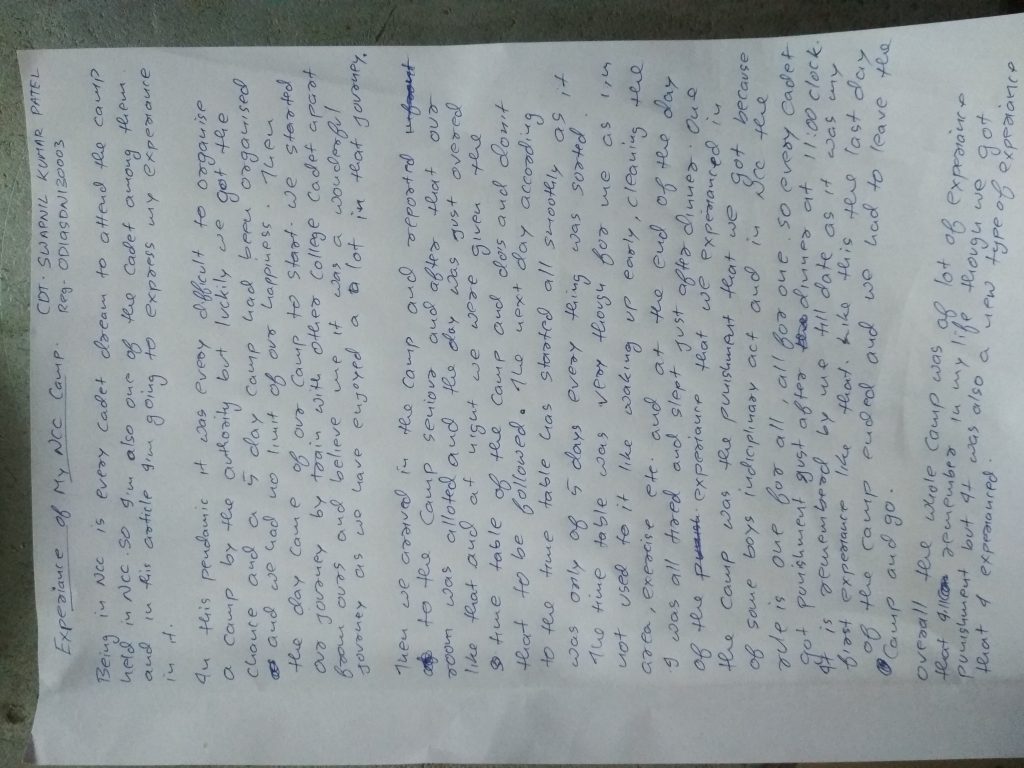 Experiance of My Ncc Camp.
CDT SWAPNIL KUMAR PATEL
Reg. OD19SDN120003
Being in Ncc is every Cadet dream to attend the camp
held in Ncc. so I'm also one of the Cadet among them
and in this article I'm going to express my experiance
in it.
In this pendamic it was every difficult to organise
a camp by the authority but lukily we got the
chance and a 5 day camp had been organised
and we had no limit of our happiness. Then
the day came of our Camp to start. we started
our journey by train with other college Cadet apart
from ours and believe me it was a wonderful
journey as we have enjoyed a lot in that journey.
Then we arrived in the Camp and reported
to the Camp seniour and after that our
room was alloted and the day was just overed
like that and at night we were given the
time table of the Camp and do's and don't
that to be followed. The next day according
to the time table has started all smoothly as it
was only of 5 days every thing was sorted.
The time table was very though for me as i,m
not used to it like waking up early, cleaning the
area, exercise etc. and at the end of the day
I was all tired and slept just after dinner. One
of the experiance that we experianced in
the Camp was the punishment that we got because
of some boys indiciplinary act and in Ncc the
rule is one for all, all for one. so every cadet
got punishment gust after dinner at 11:00 clock.
It is remembered by me till date as it was my
first experiance like that. Like this the last day
of the camp ended and we had to leave the
Camp and go.
overall the whole Camp was of lot of experiance
that remember in my life though we got
punishment but It was also a new type of experiance
that I experianced.